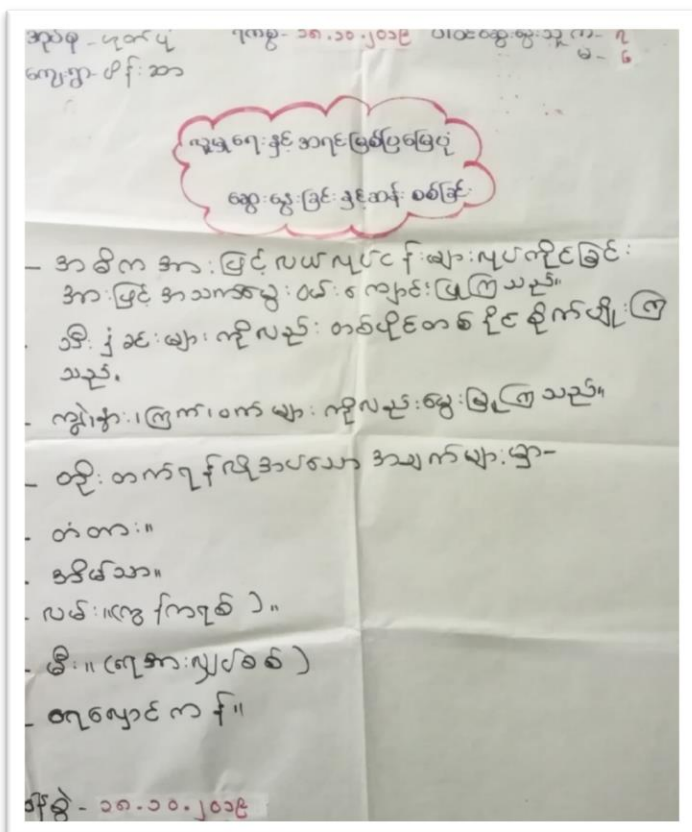 အုပ်စု - ဟုတ်ပုံ ရက်စွဲ - ၁၈.၁၀.၂၀၁၉ ပါဝင်ဆွေးနွေးသူ ကျ - ၇
ကျေးရွာ - ထိန်းသာ မ - ၆
လူမှုရေးနှင့် အရင်းမြစ်ပြမြေပုံ
ဆွေးနွေးခြင်းနှင့်ဆန်းစစ်ခြင်း
- အဓိကအားဖြင့် လယ်လုပ်ငန်းများလုပ်ကိုင်ခြင်း
အားဖြင့် အသက်မွေးဝမ်းကျောင်းပြုကြသည်။
- သီးနှံခင်းများကိုလည်း တစ်ပိုင်တစ်နိုင် စိုက်ပျိုးကြ
သည်.
- ကျွဲ၊နွား၊ကြက်၊ဝက်များကိုလည်းမွေးမြူကြသည်။
- တိုးတက်ရန်လိုအပ်သော အချက်များမှာ-
- တံတား။
- အိမ်သာ။
- လမ်း။(ကွန်ကရစ်)။
- မီး။ (ရေအားလျှပ်စစ်)
- ရေလှောင်ကန်။
- ၁၈.၁၀.၂၀၁၉